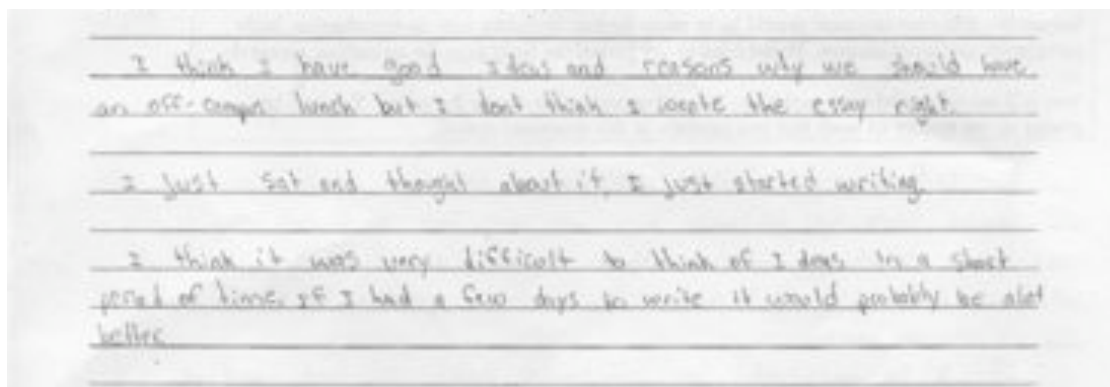 I think I have good Ideas and reasons why we should have
an off-campus lunch but I dont think I wrote the essay right.
I just sat and thought about it, I just started writing.
I think it was very difficult to think of I deas in a short
period of time. If I had a few days to write it would probably be alot
better